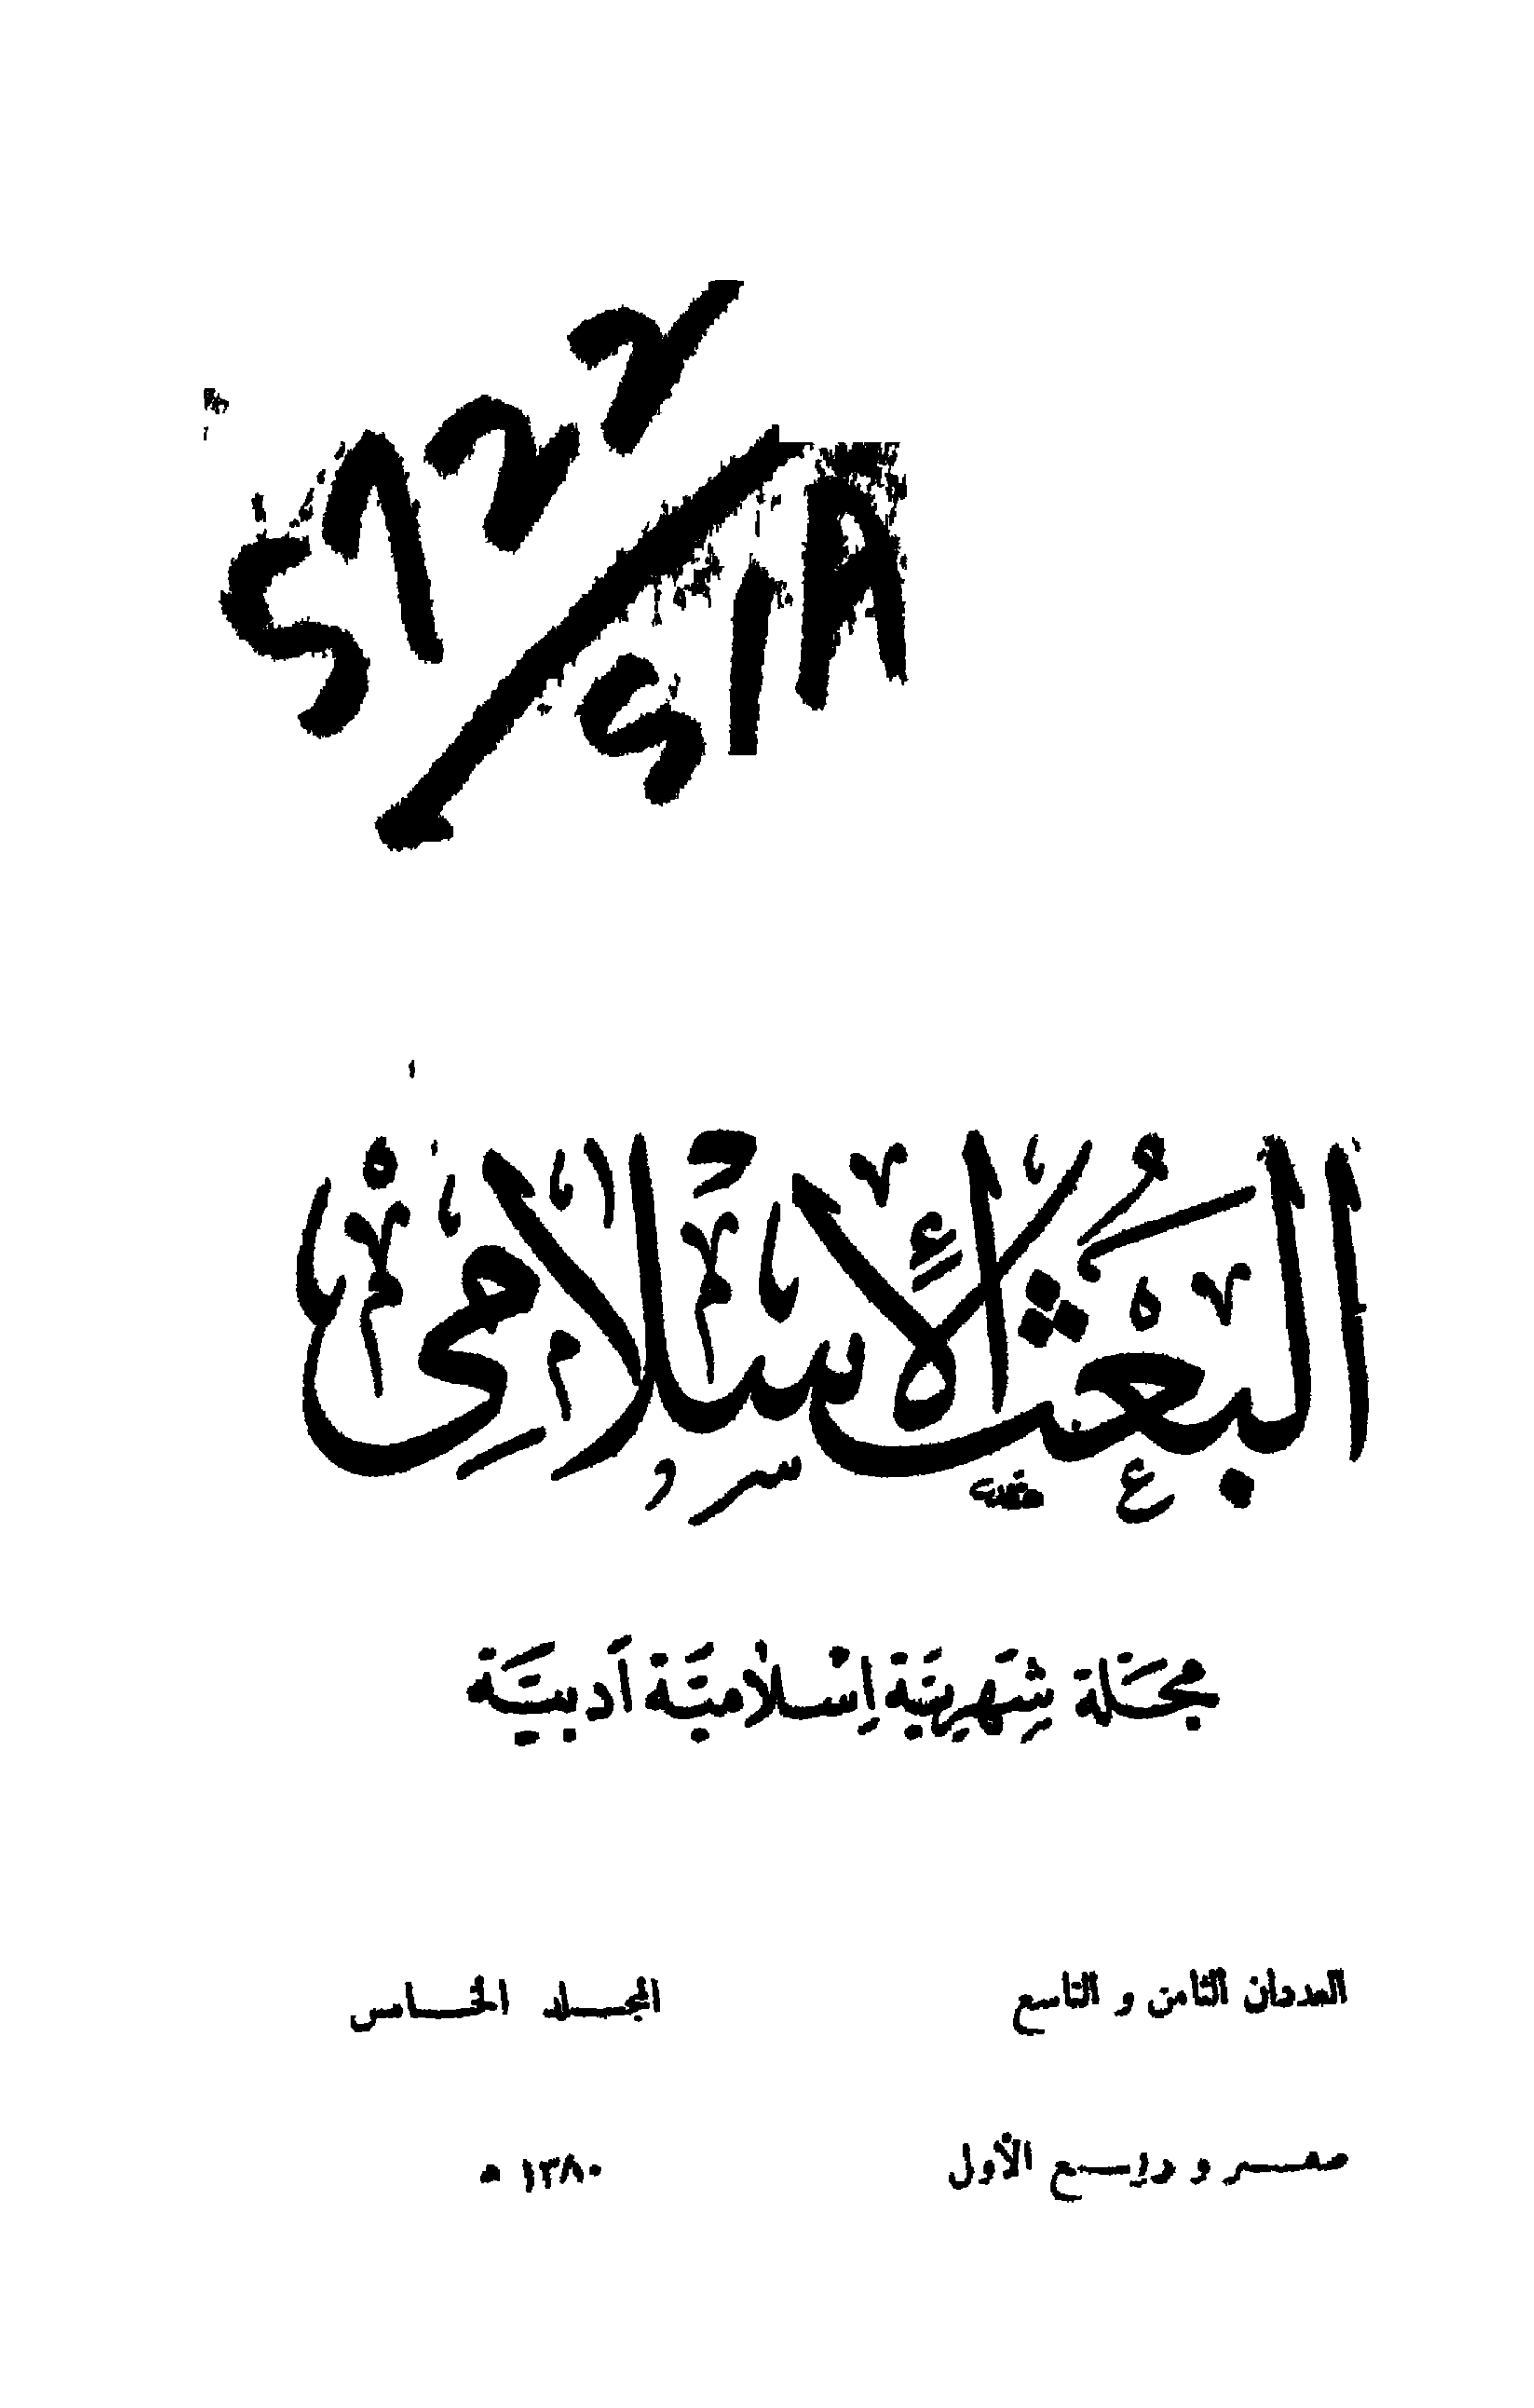 البَعَثُ الاسْلَامِيّ
مَجَلَّة شَهْرِيَّة اِسْلَامِيَّة اَدَبِيَّة
العددان الثامن و التاسع المجلد الخامس
صفر و ربيع الأول ١٣٨٠ ه